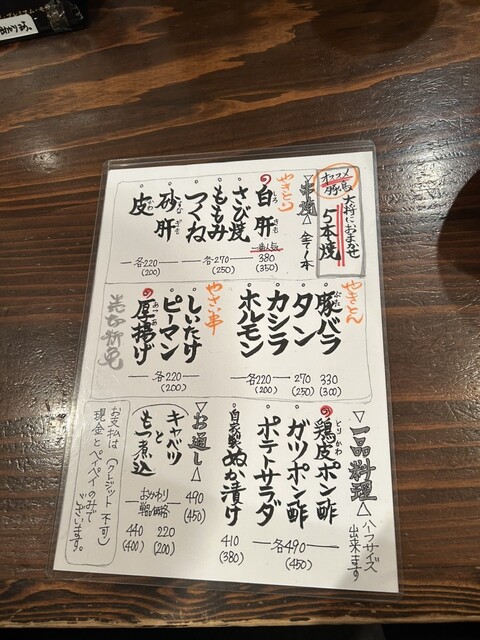 オススメ
豚鳥
大将におまかせ
5本焼
▽串焼△ 全て1本
やきとり
白肝
しろきも
一番人気
380
(350)
さび焼
ももみ
各270
(250)
つくね
砂肝
すなぎも
皮
かわ
各220
(200)
やきとん
豚バラ
ぶた
330
(300)
タン
270
(250)
カシラ
ホルモン
各220
(200)
やさい串
しいたけ
ピーマン
厚揚げ
あつあ
各220
(200)
▽一品料理△
ハーフサイズ
出来ます
鶏皮ポン酢
とりかわ
ガツポン酢
ポテトサラダ
各490
(450)
自家製ぬか漬け
410
(380)
▽お通し△
490
(450)
キャベツ
と
もつ煮込
おかわり
価格
220
(200)
440
(400)
お支払は
(クレジット不可)
現金とペイペイのみで
ございます。